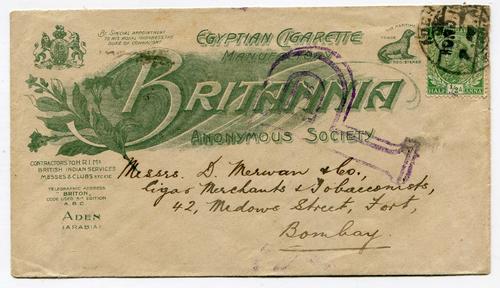 By Special Appointment
to His Royal Highness the
Duke of Connaught
Egyptian Cigarette
Manufactory
Trade
Registered
Britannia
Anonymous Society
Contractors to H.R.I.M's
British Indian Services
Messes & Clubs etc etc
Telegraphic Address
Briton,
Code used 5th Edition
A.B.C.
Aden
(Arabia)
Half Anna
½ A
Messrs. D. Merwan & Co,
Cigar Merchants & Tobacconists,
42, Medows Street, Fort,
Bombay.